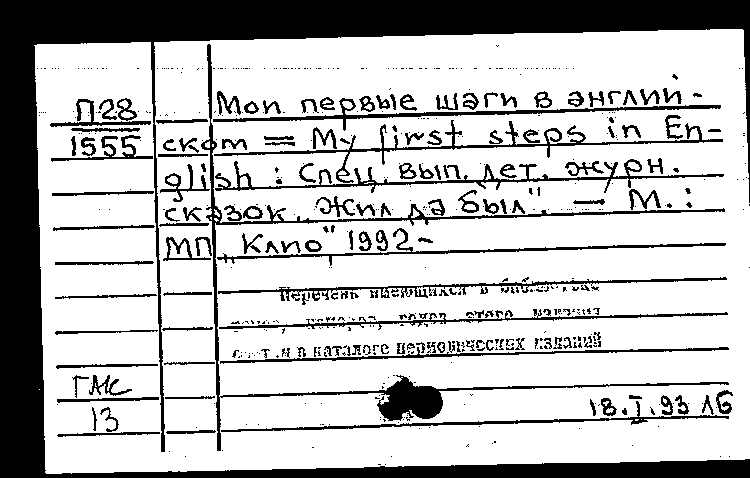 П28
1555
Мои первые шаги в англий-
ском = My first steps in En-
glish : Спец. вып. дет. журн.
сказок „Жил да был". — М. :
МП „Клио", 1992-
Перечень имеющихся в библиотеке
номеров, годов этого издания
в каталоге периодических изданий
ГМС
13
18.I.93 ЛБ